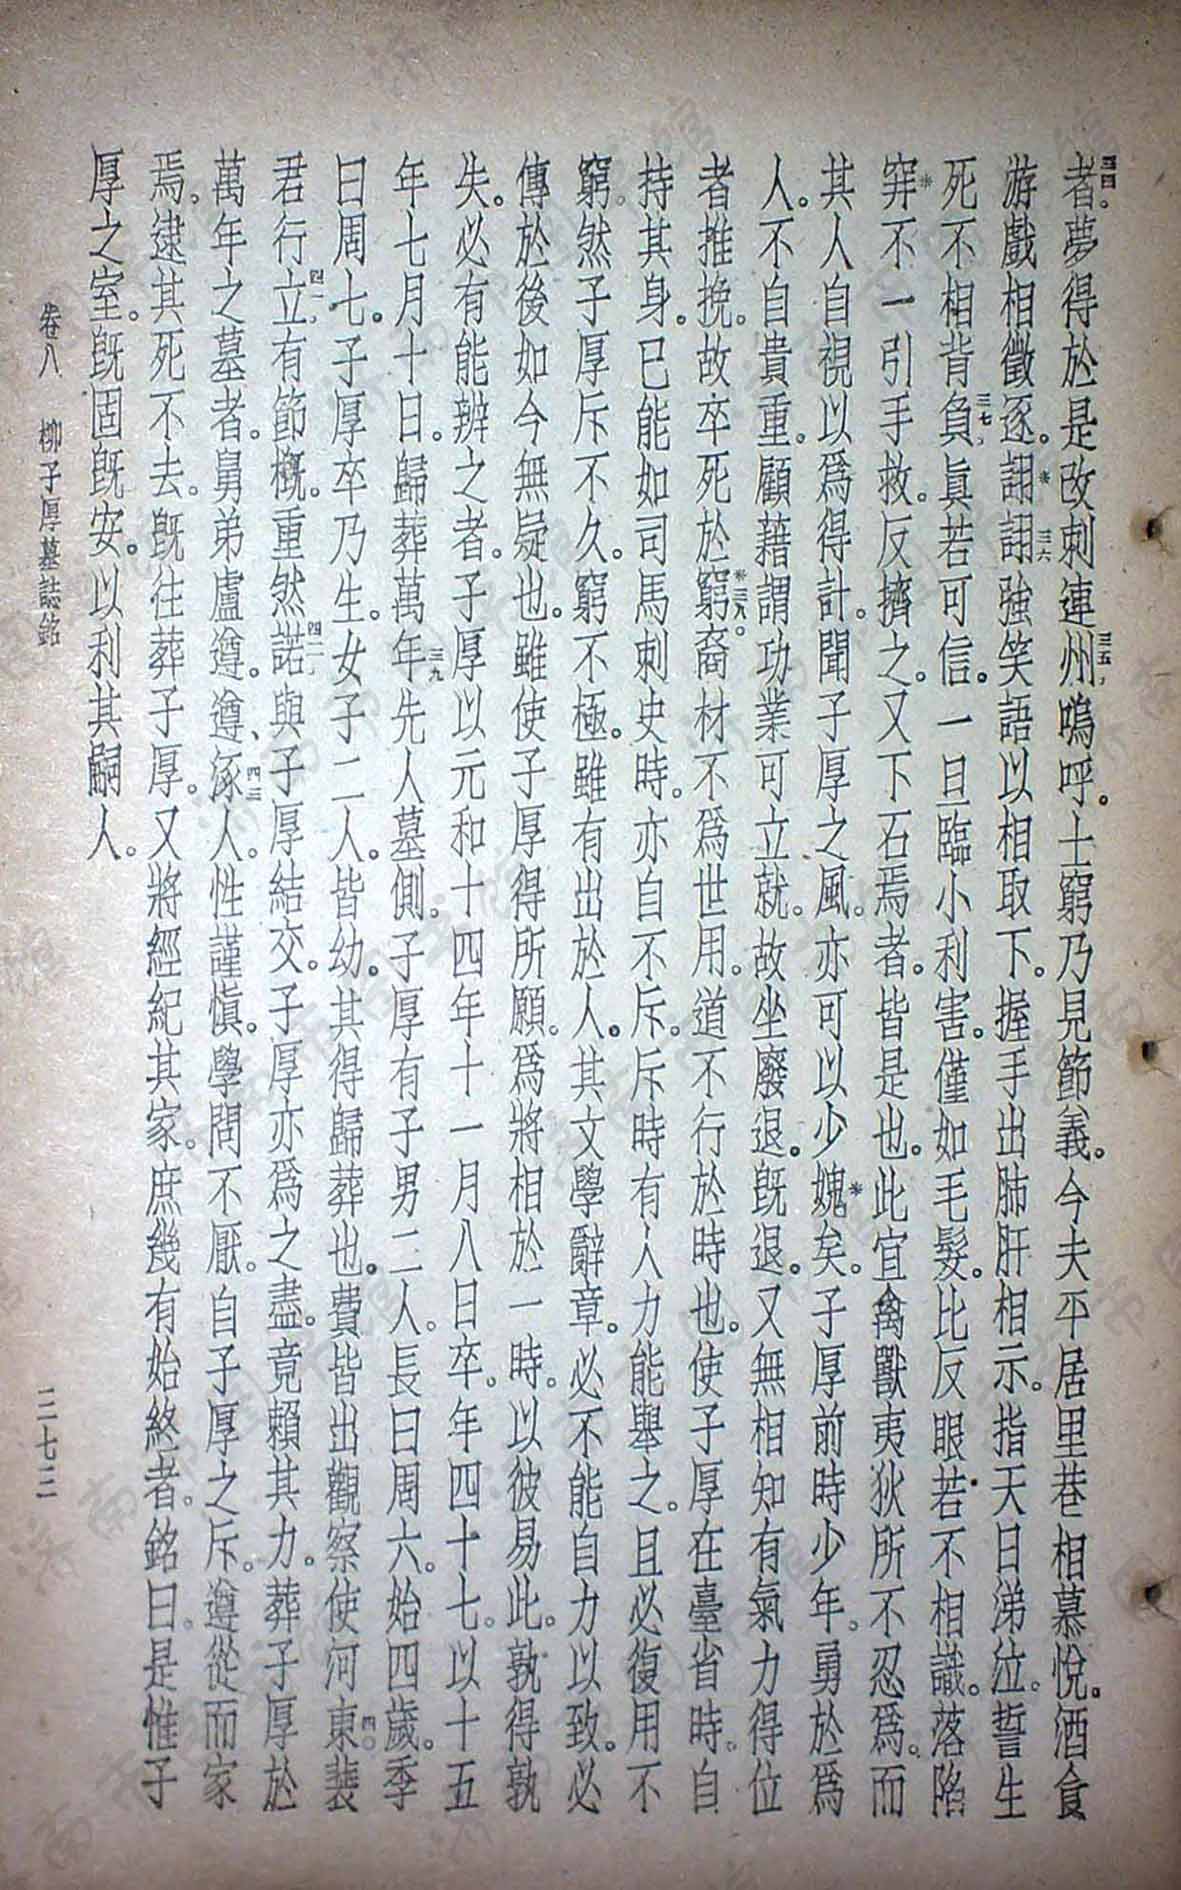 者。夢得於是改刺連州三五,嗚呼。士窮乃見節義。今夫平居里巷相慕悅。酒食
游戲相徵逐。詡*詡三六強笑語以相取下。握手出肺肝相示。指天日涕泣。誓生
死不相背負三七,眞若可信。一旦臨小利害。僅如毛髮。比反眼若不相識。落陷
穽*不一引手救。反擠之。又下石焉者。皆是也。此宜禽獸夷狄所不忍爲。而
其人自視以爲得計。聞子厚之風。亦可以少媿*矣。子厚前時少年。勇於爲
人。不自貴重。顧藉謂功業可立就。故坐廢退。旣退。又無相知有氣力得位
者推挽。故卒死於窮*裔三八。材不爲世用。道不行於時也。使子厚在臺省時。自
持其身。已能如司馬刺史時。亦自不斥。斥時有人力能舉之。且必復用不
窮。然子厚斥不久。窮不極。雖有出於人。其文學辭章。必不能自力以致。必
傳於後如今無疑也。雖使子厚得所願。爲將相於一時。以彼易此。孰得孰
失。必有能辨之者。子厚以元和十四年十一月八日卒。年四十七。以十五
年七月十日。歸葬萬年三九先人墓側。子厚有子男二人。長曰周六。始四歲。季
曰周七。子厚卒乃生。女子二人。皆幼。其得歸葬也。費皆出觀察使河東四〇裴
君行立四一,有節概。重然諾四二,與子厚結交。子厚亦爲之盡。竟賴其力。葬子厚於
萬年之墓者。舅弟盧遵。遵、涿四三人。性謹愼。學問不厭。自子厚之斥。遵從而家
焉。逮其死不去。旣往葬子厚。又將經紀其家。庶幾有始終者。銘曰。是惟子
厚之室。旣固旣安。以利其嗣人。
卷八 柳子厚墓誌銘 二七三